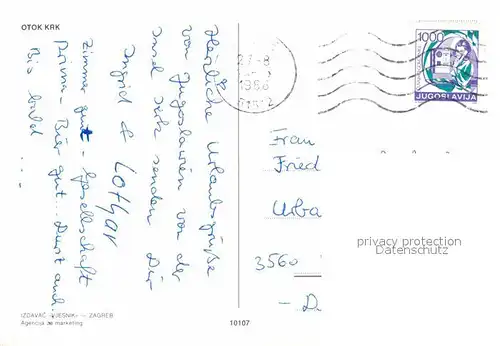 OTOK KRK
Herzliche Urlaubsgrüße
von Jugoslawien von der
Insel Krk senden Dir
Ingrid & Lothar
Zimmer gut - Gesellschaft
Prima - Bier gut. Durst auch.
Bis bald ...
27.-8
1988
1000
JUGOSLAVIJA
Frau
Fried
Urba
3560
- D.
privacy protection
Datenschutz
IZDAVAČ »VJESNIK« — ZAGREB
Agencija za marketing
10107